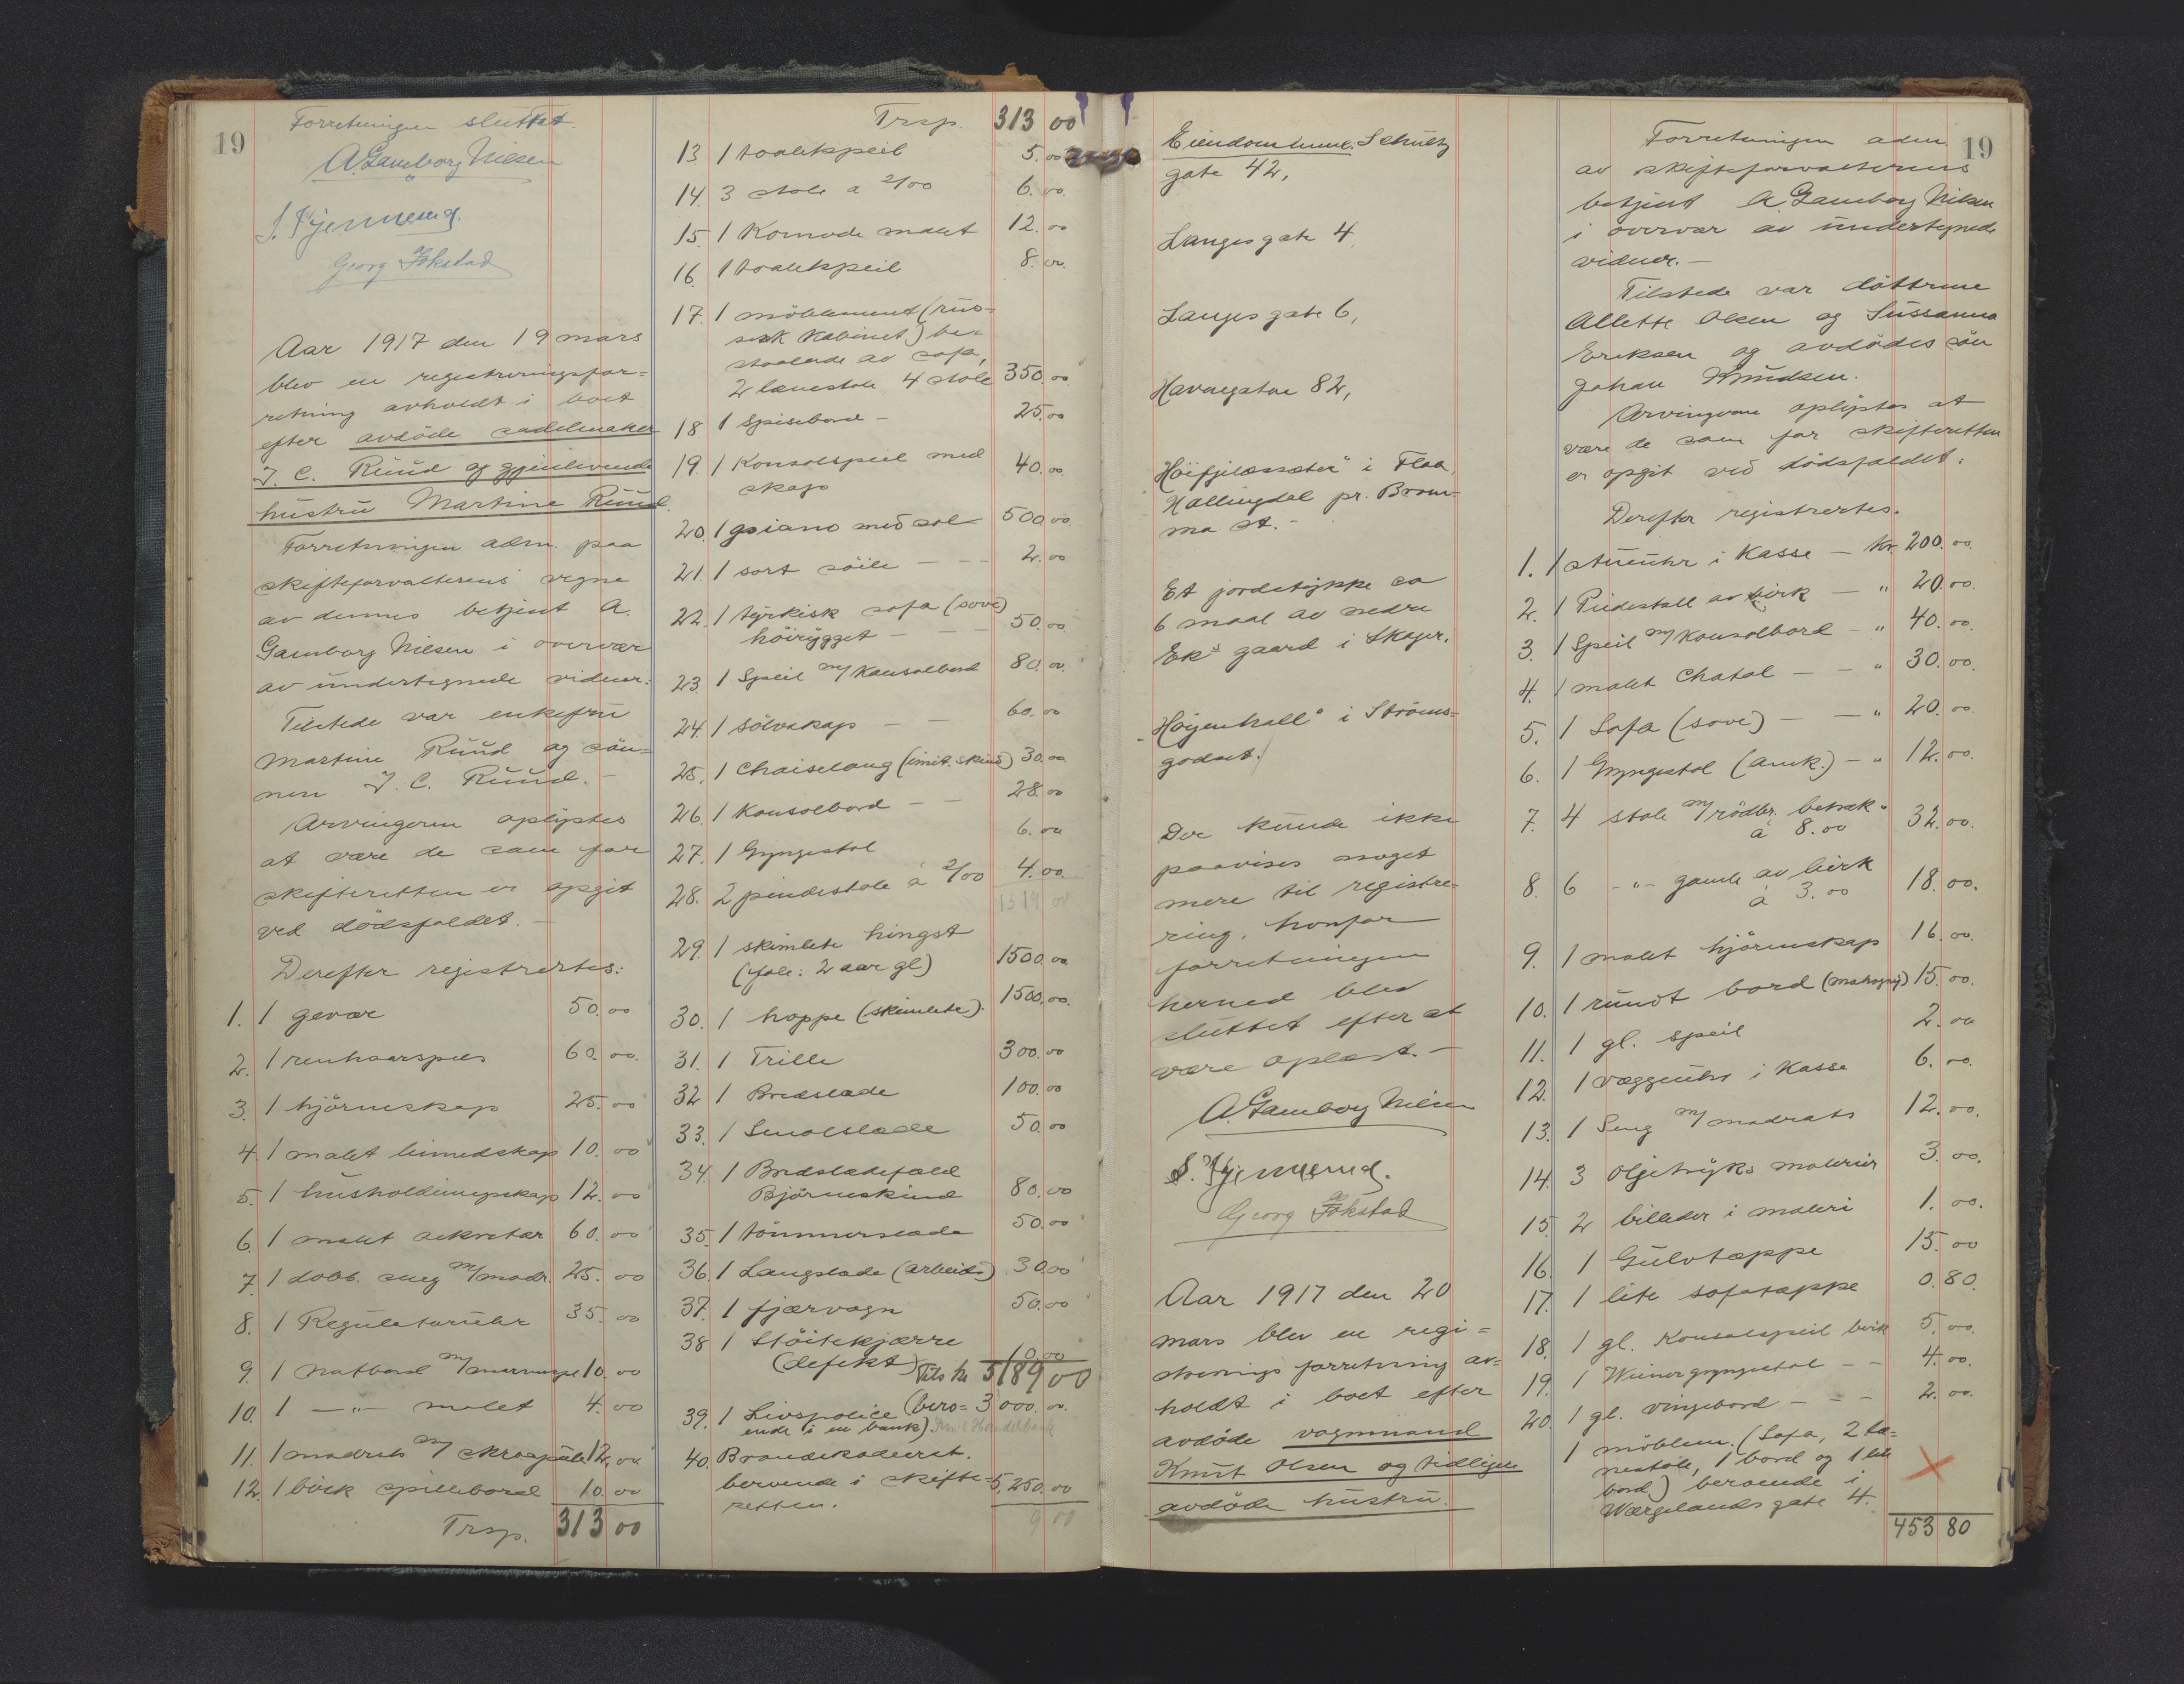 19
Forretningen sluttet.
A. Gamborg Nilsen
Georg Fokstad
Aar 1917 den 19 mars
blev en registreringsfor=
retning avholdt i boet
efter avdöde sadelmaker
J. C. Ruud og gjenlevende
hustru Martine Ruud.
Forretningen adm. paa
skifteforvalterens vegne
av dennes betjent A.
Gamborg Nilsen i overvær
av undertegnede vidner:
Tilstede var enkefru
Martine Ruud og søn=
nen J. C. Ruud. –
Arvingerne oplystes
at være de som for
skifteretten er opgit
ved dödsfaldet. –
Derefter registrertes:
1. 1 gevær 50.00
2. 1 renhaarspels 60.00
3. 1 hjörneskap 25.00
4. 1 malet linnedskap 10.00
5. 1 husholdningsskap 12.00
6. 1 malet sekretær 60.00
7. 1 dobb. seng m/madr. 25.00
8. 1 Regulatoruhr 35.00
9. 1 natbord m/marmorpl 10.00
10. 1 –"– malet 4.00
11. 1 madrats m/ skraapute 12.00
12. 1 birk spillebord 10.00
Trsp. 313 00
Trsp. 313 00
13 1 toaletspeil 5.00
14. 3 stole a 2/00 6.00
15. 1 Komode malet 12.00
16. 1 toaletspeil 8.00
17. 1 möblement (rus=
sisk kabinet) be=
staaende av sofa,
2 lænestole 4 stole 350.00
18 1 Spisebord – 25.00
19. 1 Konsolspeil med
skap 40.00
20. 1 piano med stol 500.00
21. 1 sort söile – – – 2.00
22. 1 tyrkisk sofa (sove)
höirygget – – – 50.00
23. 1 Speil m/ Konsolbord 80.00
24. 1 sölvskap – – 60.00
25. 1 Chaiselong (imit. skind) 30.00
26. 1 Konsolbord – – 28.00
27. 1 Gyngestol 6.00
28. 2 pindestole á 2/00 4.00
1519 00
29. 1 skimlete hingst
(fole: 2 aar gl) 1500.00
30. 1 hoppe (skimlete). 1500.00
31. 1 Trille 300.00
32 1 Bredslæde 100.00
33. 1 Smalslæde 50.00
34. 1 Bredslædefæld
Björneskind 80.00
35. 1 tömmerslæde 50.00
36. 1 Langslæde (arbeids) 30.00
37. 1 fjærvogn 50.00
38 1 Stöitekjærre
(defekt) 10.00
Tils kr 5189 00
39. 1 Livspolice (bero= 3000.00
ende i en bank) Handelsbank
40. Brandskadeerst.
beroende i skifte= 5,250.00
retten.
9 00
Eiendommene: Schultz
gate 42,
Langes gate 4,
Langes gate 6,
Havnegaten 82,
"Höifjeldssæter" i Flaa,
Hallingdal pr. Brom=
ma st. –
Et jordstykke ca
6 maal av nedre
Ek's gaard i Skoger.
"Höyenhall" i Ströms=
godset.
Der kunde ikke
paavises noget
mere til registre=
ring, hvorfor
forretningen
hermed blev
sluttet efter at
være oplæst. –
A. Gamborg Nilsen
Georg Fokstad
Aar 1917 den 20
mars blev en regi=
strerings forretning av=
holdt i boet efter
avdöde vognmand
Knut Olsen og tidligere
avdöde hustru.
19
Forretningen adm.
av skifteforvalterens
betjent A. Gamborg Nilsen
i overvær av undertegnede
vidner. –
Tilstede var döttrene
Allette Olsen og Sussanna
Eriksen og avdödes sön
Johan Knudsen.
Arvingerne oplystes at
være de som for skifteretten
er opgit ved dödsfaldet:
Derefter registrertes.
1. 1 stueuhr i Kasse – Kr. 200.00
2. 1 Piedestall av birk – " 20.00
3. 1 Speil m/ Konsolbord – " 40.00
4. 1 malet Chatol – – " 30.00
5. 1 Sofa (sove) – – " 20.00
6. 1 Gyngestol (amk.) – " 12.00
7. 4 stole m/ rödbr. betræk "
á 8.00 32.00
8. 6 –"– gamle av birk
á 3.00 18.00
9. 1 malet hjörneskap 16.00
10. 1 rundt bord (mahogny) 15.00
11. 1 gl. speil 2.00
12. 1 væggeuhr i Kasse 6.00
13. 1 Seng m/ madrats 12.00
14. 3 Oljetryks malerier 3.00
15. 2 billeder i maleri 1.00
16. 1 Gulvtæppe 15.00
17. 1 lite sofatæppe 0.80
18. 1 gl. Konsolspeil birk 5.00
19. 1 Wienergyngestol – – 4.00
20. 1 gl. vingebord – – 2.00
1 möblem. (Sofa, 2 læ=
nestole, 1 bord og 1 lite
bord) beroende i
Wergelands gate 4.
453 80